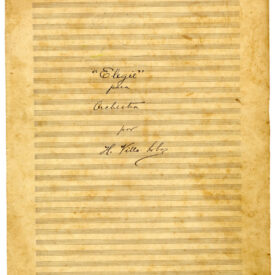 "Elegie"
para
Orchestra
por
H. Villa Lobos